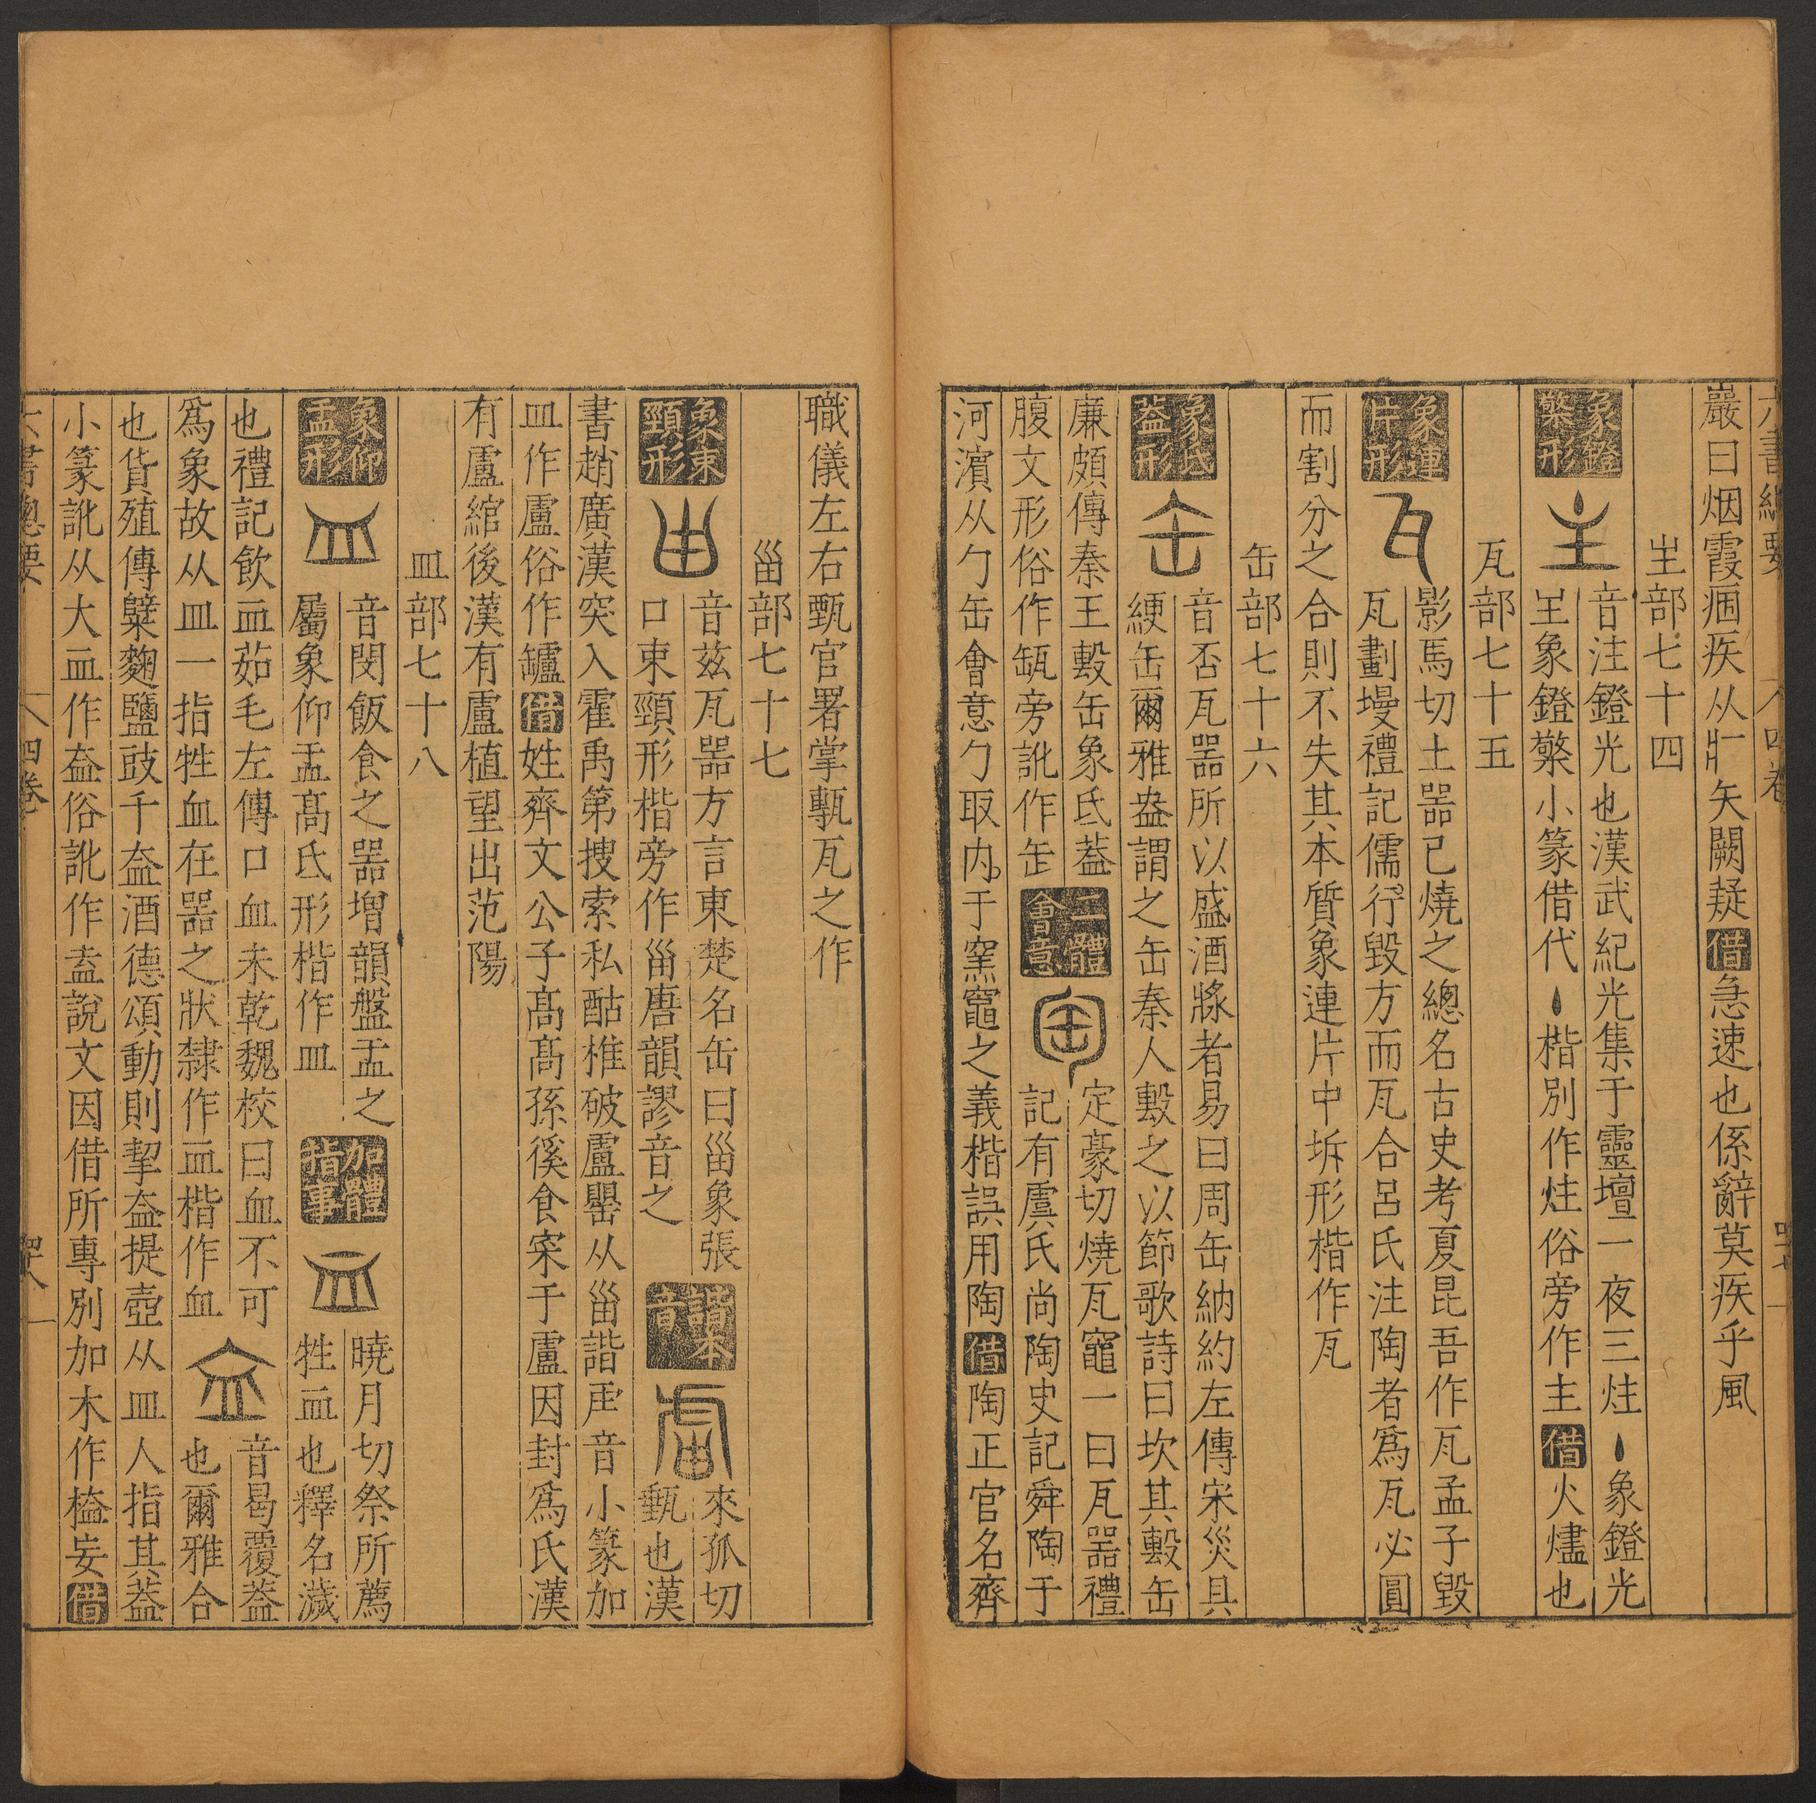 六書總要 四卷 四十七
巖曰烟霞痼疾从疒矢闕疑借急速也係辭莫疾乎風
主部七十四
象鐙檠形 音注鐙光也漢武紀光集于靈壇一夜三炷象鐙光
𪐴象鐙檠小篆借代楷別作炷俗旁作主借火燼也
瓦部七十五
象連片形 影馬切土器已燒之總名古史考夏昆吾作瓦孟子毀
瓦劃墁禮記儒行毀方而瓦合呂氏注陶者為瓦必圓
而割分之合則不失其本質象連片中坼形楷作瓦
缶部七十六
象氐蓋形 音否瓦器所以盛酒漿者易曰周缶納約左傳宋災具
綆缶爾雅盎謂之缶秦人鼓之以節歌詩曰坎其鼓缶
廉頗傳秦王鼓缶象氐蓋
腹文形俗作缻旁訛作𦈢 二體會意 定豪切燒瓦竈一曰瓦器禮
記有虞氏尚陶史記舜陶于
河濱从勹缶會意勹取内于窯竈之義楷誤用陶借陶正官名齊
職儀左右甄官署掌甎瓦之作
甾部七十七
象東頸形 音茲瓦器方言東楚名缶曰甾象張
口東頸形楷旁作甾唐韻謬音之 諧本音 來孤切
甀也漢
書趙廣漢突入霍禹第搜索私酤椎破盧罌从甾諧虍音小篆加
皿作盧俗作罏借姓齊文公子高高孫傒食寀于盧因封為氏漢
有盧綰後漢有盧植望出范陽
皿部七十八
象仰盂形 音閔飯食之器增韻盤盂之
屬象仰盂高氐形楷作皿 加體指事 曉月切祭所薦
牲血也釋名濊
也禮記飲血茹毛左傳口血未乾魏校曰血不可
為象故从皿一指牲血在器之狀隸作血楷作血 音曷覆蓋
也爾雅合
也貨殖傳糵麴鹽豉千盇酒德頌動則挈盇提壺从皿人指其蓋
小篆訛从大血作盇俗訛作盍說文因借所專別加木作榼妄借
六書總要 四卷 四十八